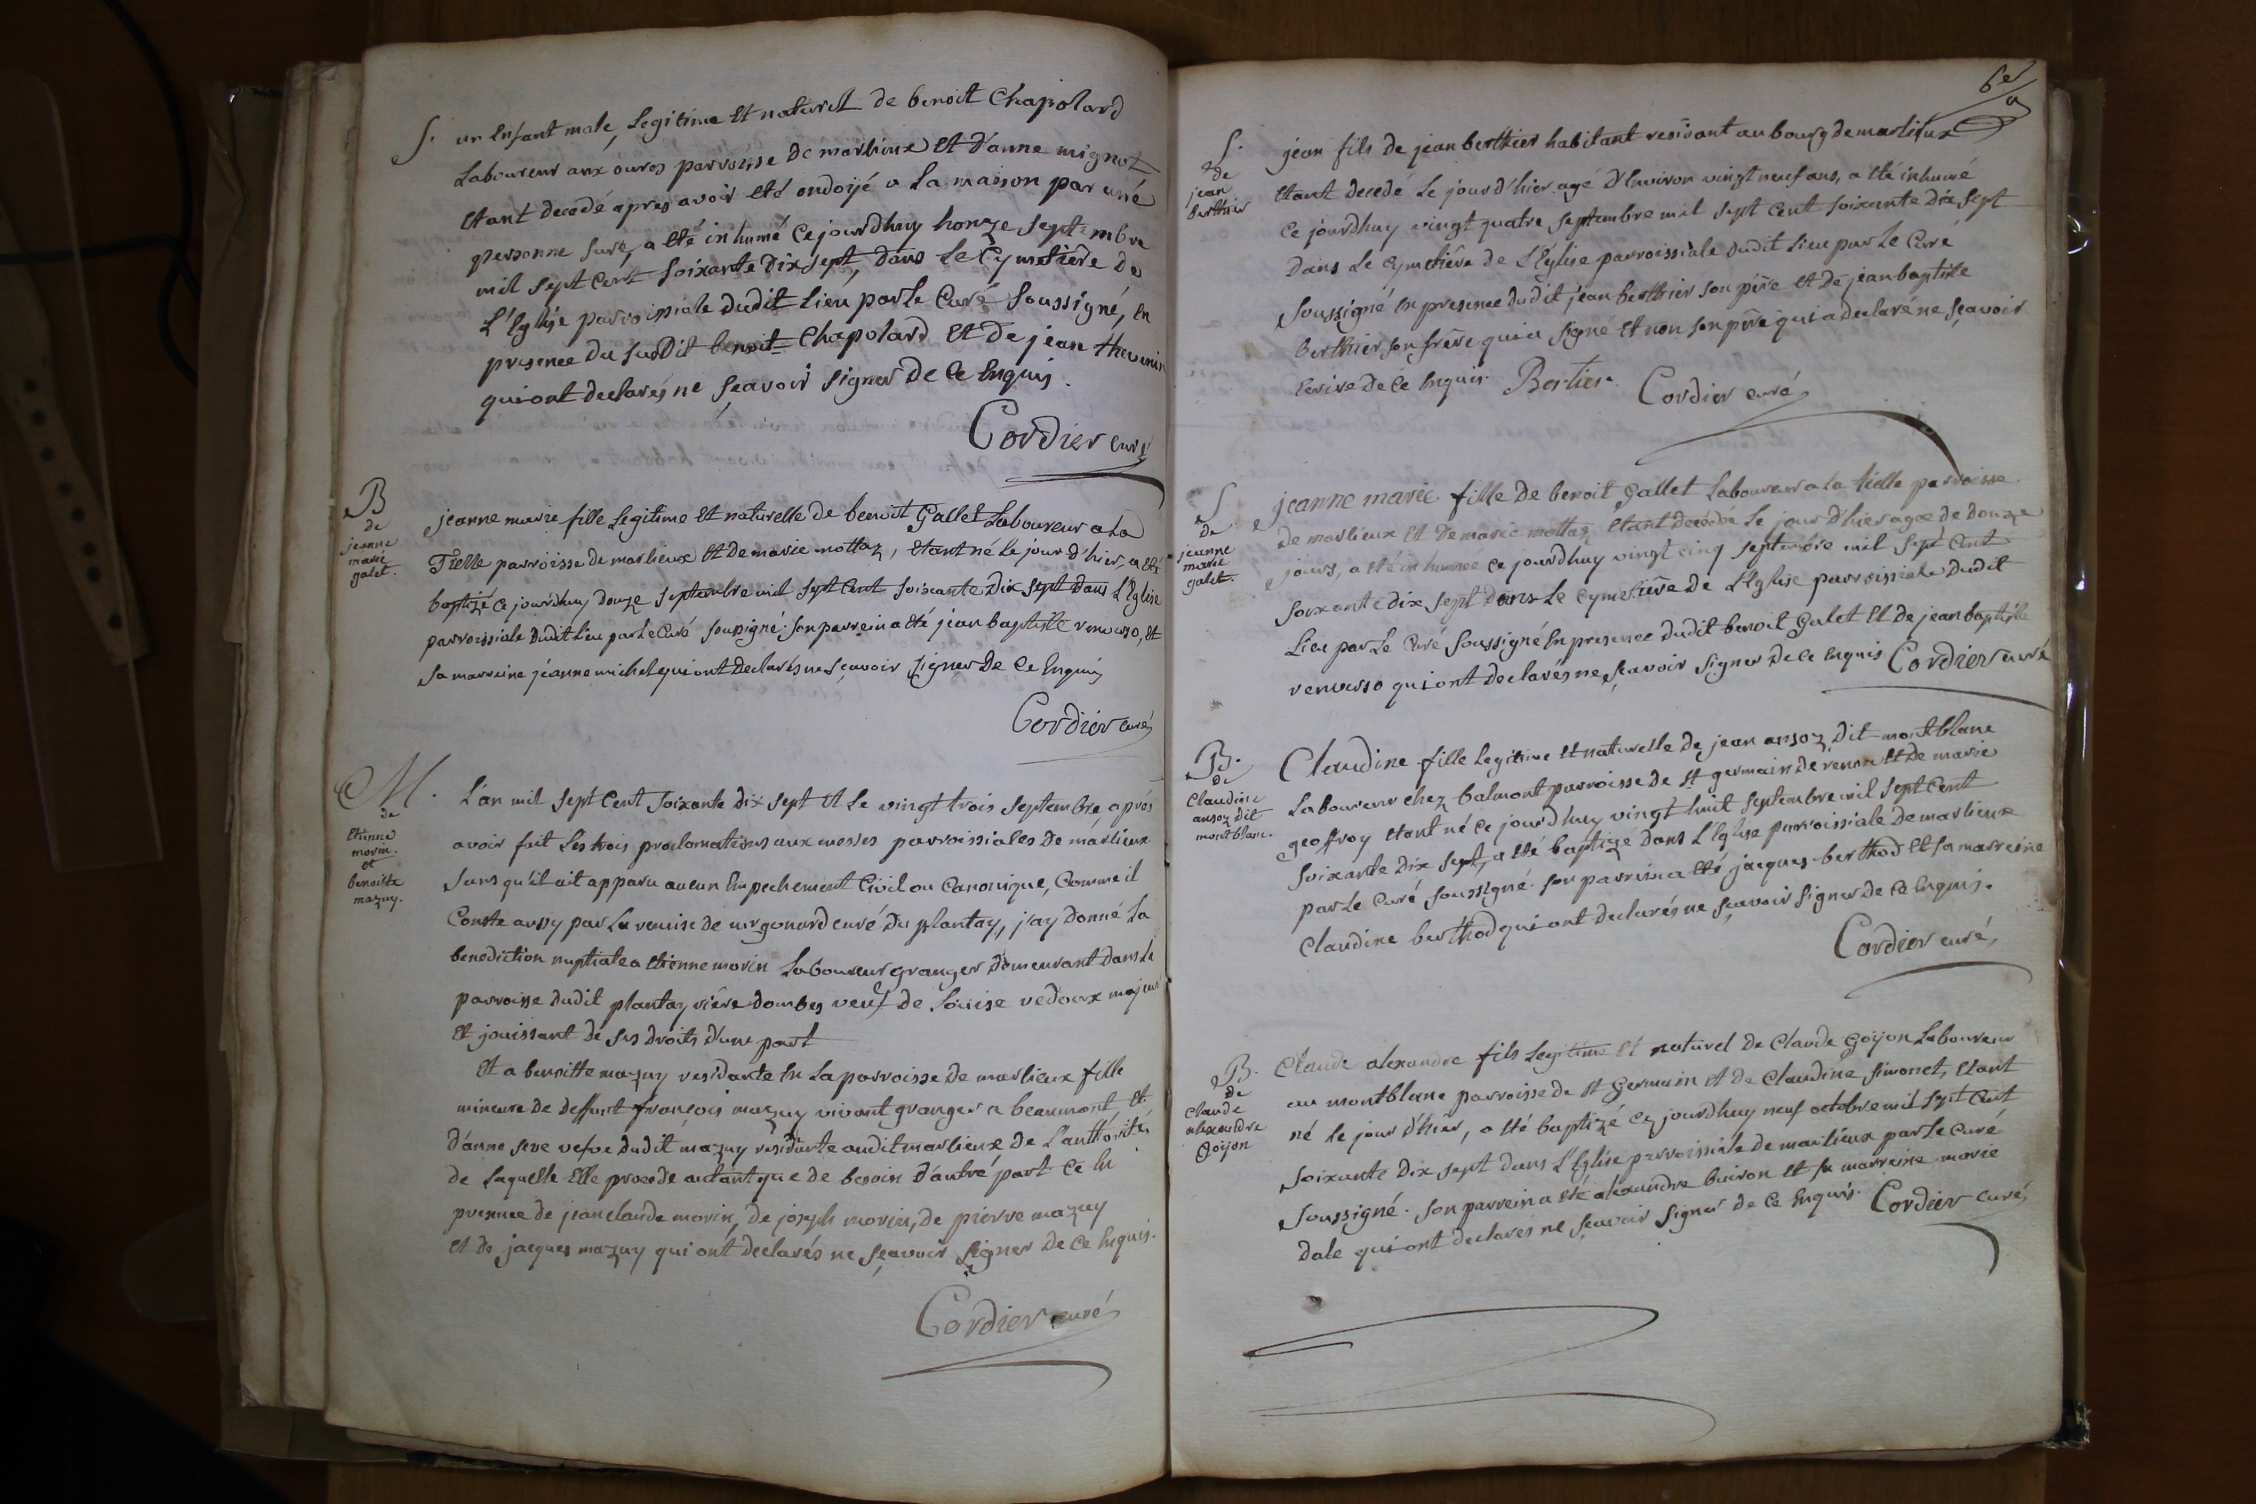 S. un Enfant male, Legitime Et naturel de benoit Chapolard
Laboureur aux oures parroisse de marlieux Et d'anne mignot
Etant decedé apres avoir eté ondoijé a La maison par une
personne sure, a eté inhumé Cejourdhuy honze septembre
mil sept Cent soixante Dix sept, Dans Le Cymetiere De
L'Eglise parroissiale Dudit Lieu par Le Curé soussigné, En
presence du susdit benoit Chapolard Et de jean thevenin
qui ont declarés ne sçavoir signer De Ce Enquis.
Cordier curé
B
de
jeanne
marie
galet.
jeanne marie fille Legitime Et naturelle de benoit Gallet Laboureur a La
Tielle parroisse de marlieux Et de marie mottaz, Etant né Le jour d'hier, a eté
baptizé Ce jourdhuy Douze septembre mil sept Cent soixante Dix sept Dans L'Eglise
parroissiale Dudit Lieu par Le Curé soussigné. son parrein a eté jean baptiste renuerso, Et
sa marreine jeanne michel qui ont Declarés ne sçavoir signer De Ce Enquis
Cordier curé
M.
de
Etienne
morin.
et
benoitte
mazuy.
L'an mil sept Cent soixante Dix sept Et Le vingt trois septembre, aprés
avoir fait Les trois proclamations aux messes parroissiales De marlieux
sans qu'il ait apparu aucun Empechement Civil ou Canonique, Comme il
Conste aussy par La remise de mr gonard curé Du plantay, j'ay Donné La
benediction nuptiale a Etienne morin Laboureur granger Demeurant Dans La
parroisse Dudit plantay rière Dombes veuf De Loüise vedoux majeur
Et joüissant De ses Droits D'une part
Et a benoitte mazuy residante En La parroisse De marlieux fille
mineure De Deffunt françois mazuy vivant granger a beaumont, Et
D'anne seve vefve Dudit mazuy residante audit marlieux De L'authorité
de Laquelle Elle procede autant que De besoin D'autre part Ce En
presence De jean claude morin, De joseph morin, De pierre mazuy
Et De jacques mazuy qui ont declarés ne sçavoir signer De Ce Enquis.
Cordier curé
6e
S.
de
jean
berthier
jean fils De jean berthier habitant residant au bourg de marlieux
Etant decedé Le jour d'hier agé D'Environ vingt neuf ans, a eté inhumé
Ce jourdhuy vingt quatre septembre mil sept Cent soixante Dix sept
Dans Le Cymetière de L'Eglise parroissiale Dudit Lieu par Le Curé
soussigné En presence Dudit jean berthier son père Et De jean baptiste
berthier son frère qui a signé Et non son père qui a declaré ne sçavoir
Ecrire De Ce Enquis. Bertier. Cordier curé
S
de
jeanne
marie
galet.
jeanne marie fille De benoit Gallet Laboureur a La tielle parroisse
De marlieux Et De marie mottaz Etant decedée Le jour D'hier agée De Douze
jours, a eté inhumée Ce jourdhuy vingt cinq septembre mil sept Cent
soixante Dix sept Dans Le Cymetière De L'Eglise parroissiale Dudit
Lieu par Le Curé soussigné En presence Dudit benoit Galet Et De jean baptiste
renuerso qui ont Declarés ne sçavoir signer De Ce Enquis Cordier curé
B.
de
Claudine
ansoz Dit
montblanc.
Claudine fille Legitime Et naturelle De jean ansoz Dit montblanc
Laboureur chez balmont parroisse De St germain De renon Et De marie
geoffroy Etant né Ce jourd'huy vingt huit septembre mil sept Cent
soixante Dix sept, a eté baptizé Dans L'Eglise parroissiale De marlieux
par Le Curé soussigné. son parrein a eté jacques berthod Et sa marreine
Claudine berthod qui ont declarés ne sçavoir signer De Ce Enquis.
Cordier curé
B.
De
Claude
alexandre
Goijon
Claude alexandre fils Legitime Et naturel De Claude Goijon Laboureur
au montblanc parroisse De St Germain Et De Claudine simonet, Etant
né Le jour D'hier, a eté baptizé Ce jourdhuy neuf octobre mil sept Cent
soixante Dix sept Dans L'Eglise parroissiale De marlieux par Le Curé
soussigné. son parrein a eté alexandre buiron Et sa marreine marie
Dale qui ont Declarés ne sçavoir signer De Ce Enquis. Cordier curé